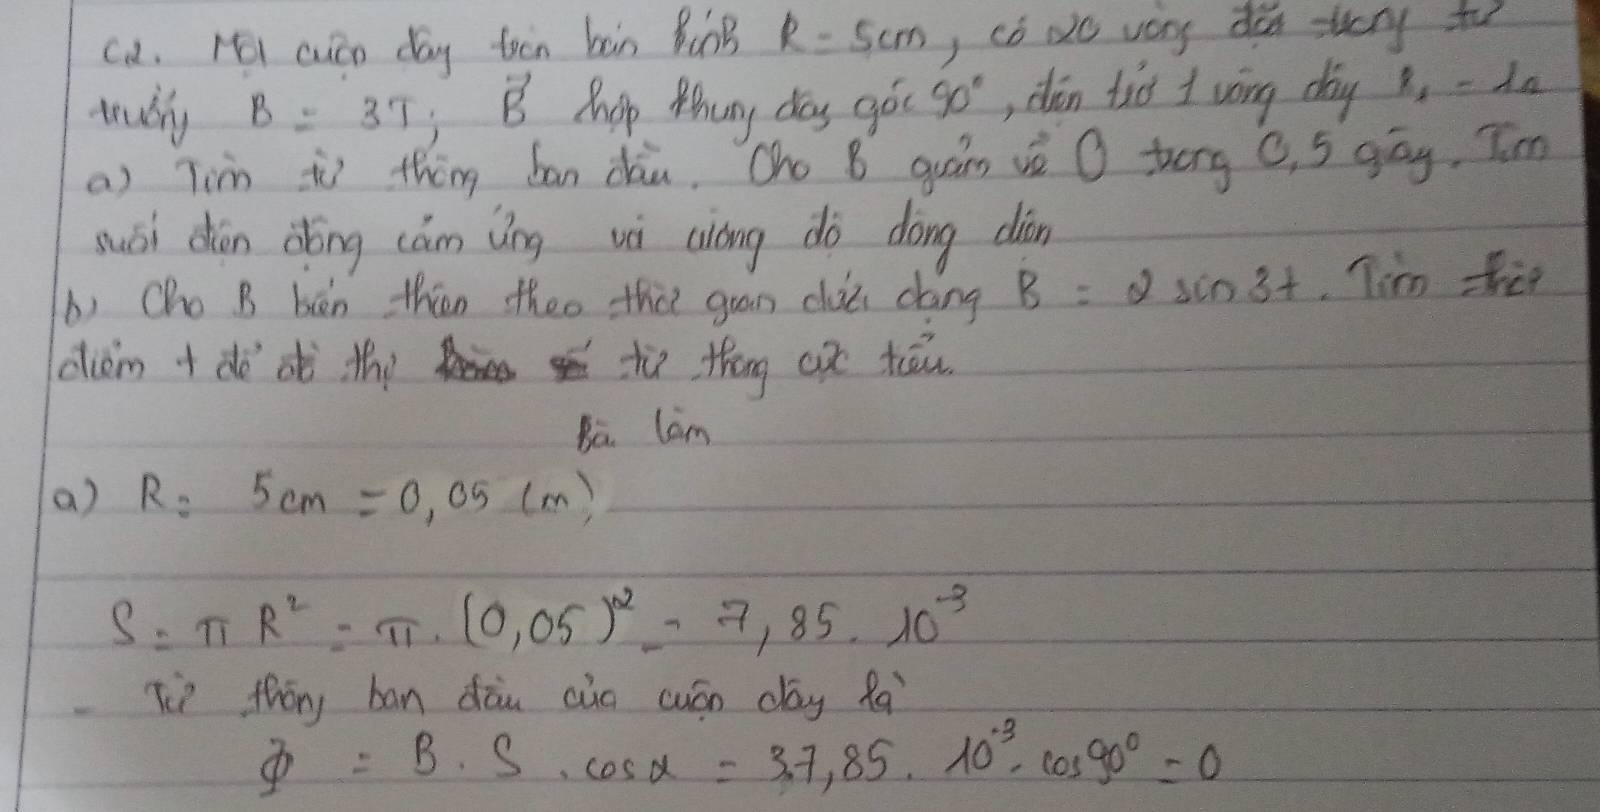 C2. Một cuộn dây tròn bán kính R = 5cm, có 20 vòng đặt trong từ
trường B = 3T; B⃗ hợp khung dây góc 90°, điện trở 1 vòng dây R₁ = 1Ω
a) Tìm từ thông ban đầu. Cho B giảm về 0 trong 0,5 giây. Tìm
suất điện động cảm ứng và cường độ dòng điện
b) Cho B biến thiên theo thời gian dưới dạng B = 2 sin 3t. Tìm thời
điểm t để đồ thị từ thông cực tiểu.
Bài làm
a) R = 5cm = 0,05 (m)
S = π R² = π . (0,05)² = 7,85 . 10⁻³
- Từ thông ban đầu của cuộn dây là
Φ = B . S . cos α = 3.7,85 . 10⁻³ . cos 90° = 0